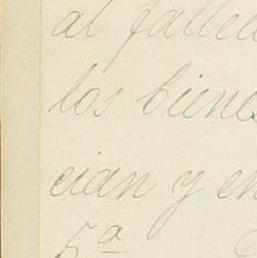 al fallec
los bienes
cian y en
5ª